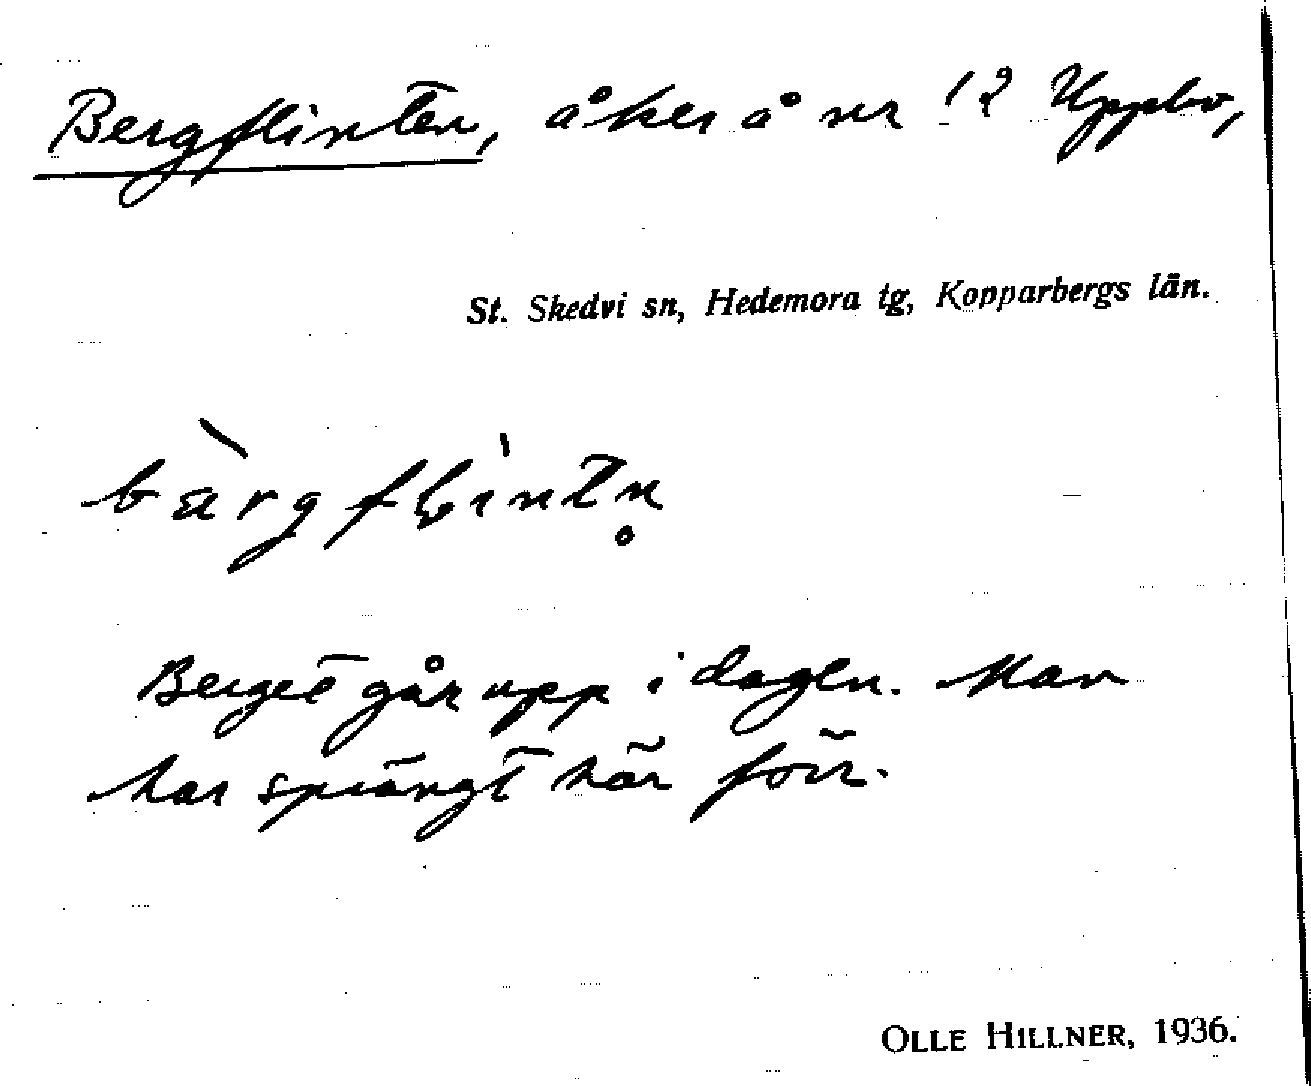 Bergflinten, åker å nr 12 Uppbo,
St. Skedvi sn, Hedemora tg, Kopparbergs län.
bàrgflintn̥
Berget går upp i dagen. Man
har sprängt här förr.
OLLE HILLNER, 1936.